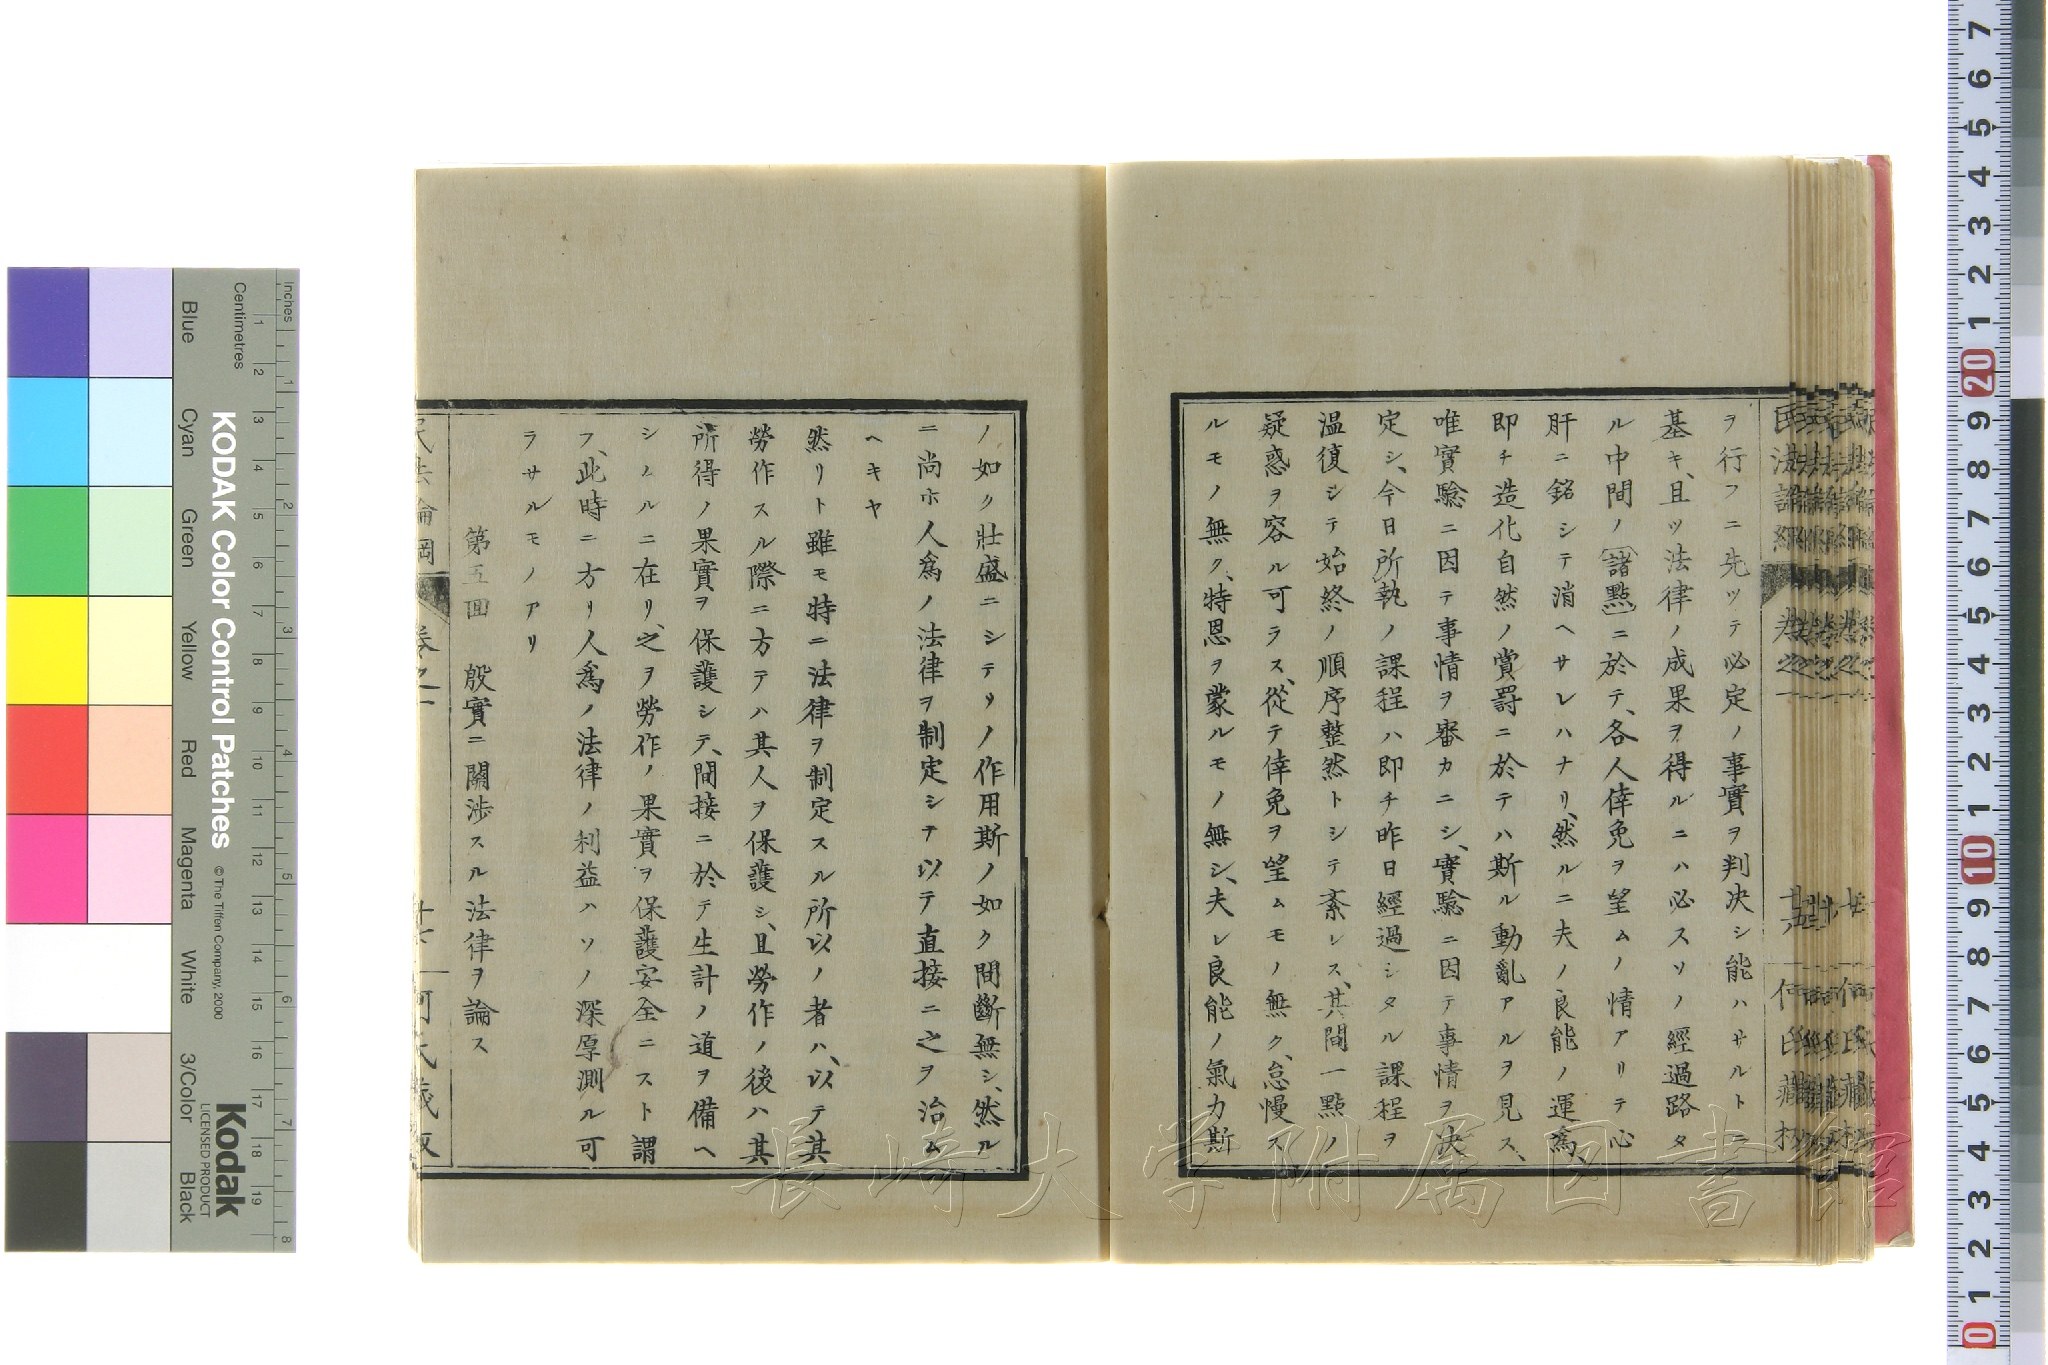 ヲ行フニ先ツテ必定ノ事實ヲ判决シ能ハサルトニ
基キ、且ツ法律ノ成果ヲ得ルニハ必スソノ經過路タ
ル中間ノ諸點ニ於テ、各人倖免ヲ望ムノ情アリテ心
肝ニ銘シテ消ヘサレハナリ、然ルニ夫ノ良能ノ運爲、
即チ造化自然ノ賞罰ニ於テハ斯ル動亂アルヲ見ス、
唯實驗ニ因テ事情ヲ審カニシ、實驗ニ因テ事情ヲ决
定シ、今日所執ノ課程ハ即チ昨日經過シタル課程ヲ
温復シテ始終ノ順序整然トシテ紊レス、其間一點ノ
疑惑ヲ容ル可ラス、從テ倖免ヲ望ムモノ無ク、怠慢ス
ルモノ無ク、特恩ヲ蒙ルモノ無シ、夫レ良能ノ氣力斯
ノ如ク壯盛ニシテソノ作用斯ノ如ク間斷無シ、然ル
ニ尚ホ人爲ノ法律ヲ制定シテ以テ直接ニ之ヲ治ム
ヘキヤ
然リト雖モ特ニ法律ヲ制定スル所以ノ者ハ、以テ其
勞作スル際ニ方テハ其人ヲ保護シ、且勞作ノ後ハ其
所得ノ果實ヲ保護シテ、間接ニ於テ生計ノ道ヲ備ヘ
シムルニ在リ、之ヲ勞作ノ果實ヲ保護安全ニスト謂
フ、此時ニ方リ人爲ノ法律ノ利益ハソノ深厚測ル可
ラサルモノアリ
第五回 殷實ニ關渉スル法律ヲ論ス
民法論綱 卷之一
何氏藏版
長崎大学附属図書館
KODAK Color Control Patches
© The Tiffen Company, 2000
Kodak
LICENSED PRODUCT
Inches
Centimetres
Blue
Cyan
Green
Yellow
Red
Magenta
White
3/Color
Black